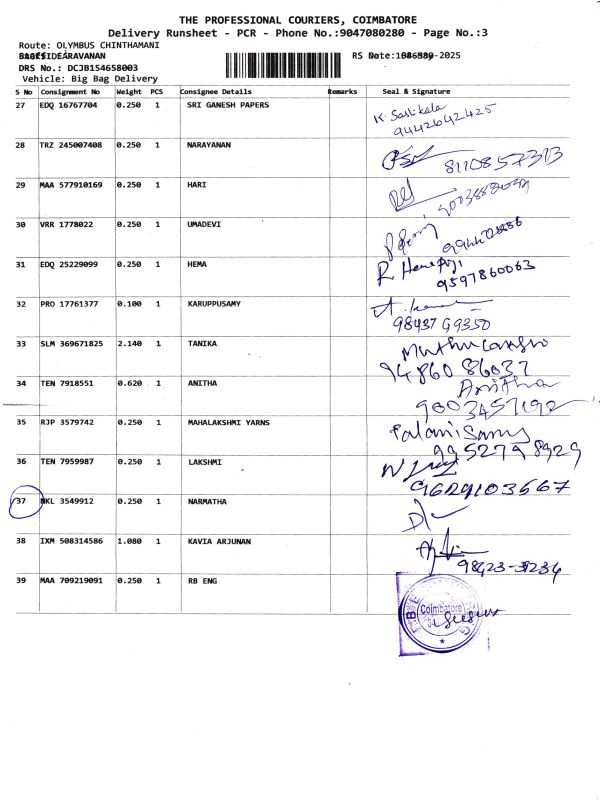 THE PROFESSIONAL COURIERS, COIMBATORE
Delivery Runsheet - PCR - Phone No.:9047080280 - Page No.:3
Route: OLYMBUS CHINTHAMANI
SARAVANAN
RS Note: -2025
DRS No.: DCJB154658003
Vehicle: Big Bag Delivery
S No Consignment No Weight PCS Consignee Details Remarks Seal & Signature
27 EDQ 16767704 0.250 1 SRI GANESH PAPERS K. Sasikala
9442642425
28 TRZ 245007408 0.250 1 NARAYANAN 8110857313
29 MAA 577910169 0.250 1 HARI
30 VRR 1778022 0.250 1 UMADEVI
31 EDQ 25229099 0.250 1 HEMA R. Hemapriji
9597860063
32 PRO 17761377 0.100 1 KARUPPUSAMY
98437 69350
33 SLM 369671825 2.140 1 TANIKA
94860 86037
34 TEN 7918551 0.620 1 ANITHA Anitha
9003457192
35 RJP 3579742 0.250 1 MAHALAKSHMI YARNS Palanisamy
9952798929
36 TEN 7959987 0.250 1 LAKSHMI
9629103667
37 NKL 3549912 0.250 1 NARMATHA
38 IXM 508314586 1.080 1 KAVIA ARJUNAN
39 MAA 709219091 0.250 1 RB ENG
Coimbatore